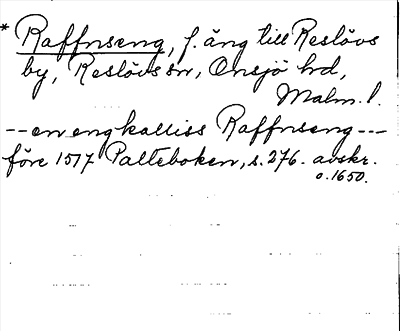 * Raffnseng, f. äng till Reslövs
by, Reslövs sn, Onsjö hd,
Malm. l.
-- en eng kalliss Raffnseng ---
före 1517 Palteboken, s. 276. avskr.
o. 1650.